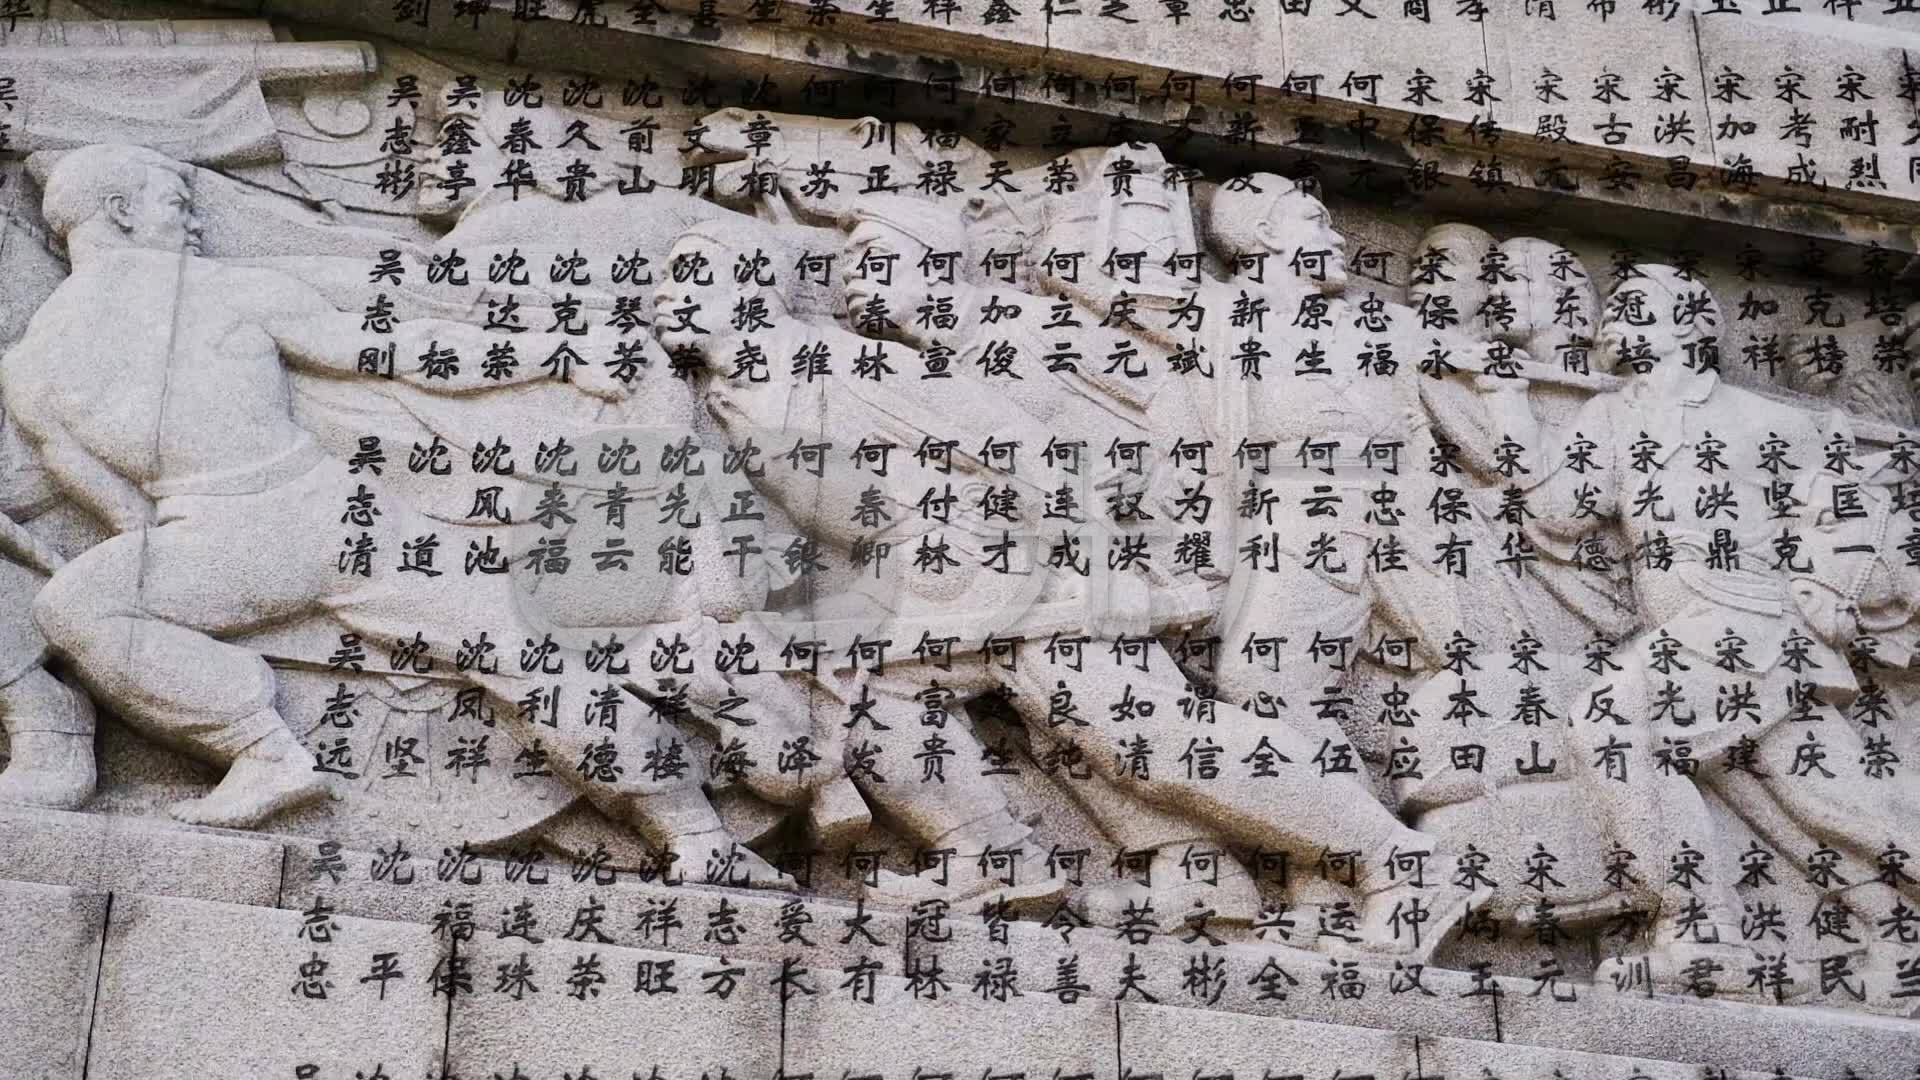 吴志彬 吴鑫亭 沈春华 沈久贵 沈前山 沈文明 沈章相 何苏 何川正 何福禄 何家天 何立荣 何庆贵 何万祥 何新发 何正常 何中元 宋保银 宋传镇 宋殿元 宋古安 宋洪昌 宋加海 宋考成 宋耐烈
吴志刚 沈标 沈达荣 沈克介 沈琴芳 沈文荣 沈振尧 何维 何春林 何福宣 何加俊 何立云 何庆元 何为斌 何新贵 何原生 何忠福 宋保永 宋传忠 宋东甫 宋冠培 宋洪顶 宋加祥 宋克榜 宋培荣
吴志清 沈道 沈凤池 沈来福 沈青云 沈先能 沈正干 何银 何春卿 何付林 何健才 何连成 何权洪 何为耀 何新利 何云光 何忠佳 宋保有 宋春华 宋发德 宋光榜 宋洪鼎 宋坚克 宋匡一 宋培章
吴志远 沈坚 沈凤祥 沈利生 沈清德 沈祥楼 沈之海 何泽 何大发 何富贵 何良纯 何如清 何谓信 何心全 何云伍 何忠应 宋本田 宋春山 宋反有 宋光福 宋洪建 宋坚庆 宋来荣
吴志忠 沈平 沈福保 沈连珠 沈庆荣 沈祥旺 沈志方 何爱长 何大有 何冠林 何皆禄 何令善 何若夫 何文彬 何兴全 何运福 何仲汉 宋炳玉 宋春元 宋方训 宋光君 宋洪祥 宋健民